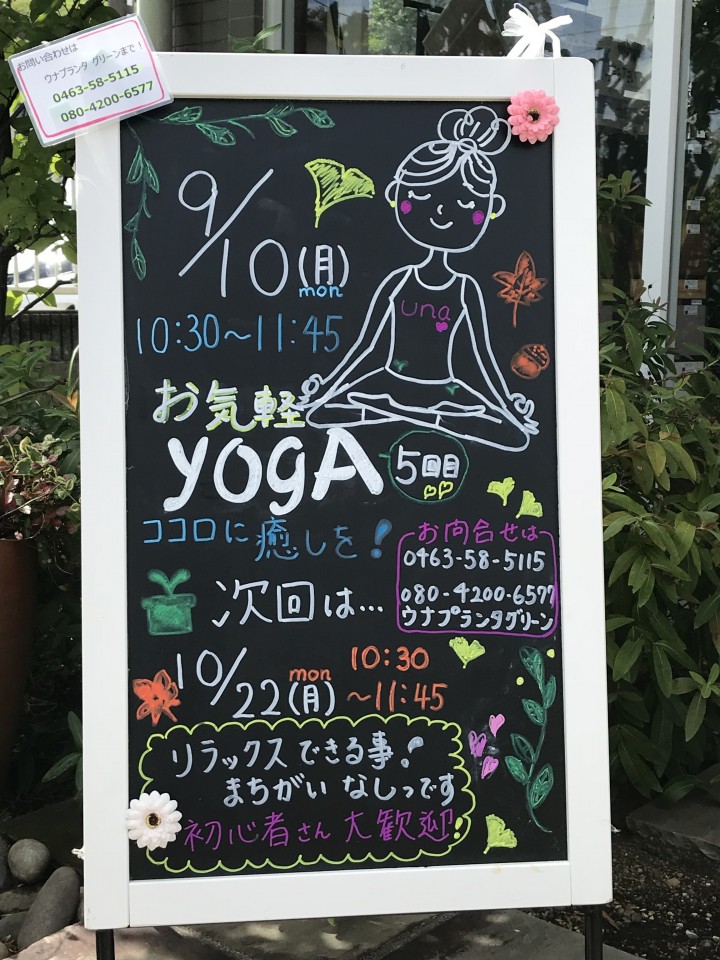 お問い合わせは
ウナプランタ グリーンまで！
0463-58-5115
080-4200-6577
9/10(月)
mon
10:30～11:45
una
お気軽
yogA
5回目
ココロに癒しを！
お問合せは
0463-58-5115
080-4200-6577
ウナプランタグリーン
次回は...
10/22(月)
mon
10:30
～11:45
リラックスできる事！
まちがいなしっです
初心者さん大歓迎！